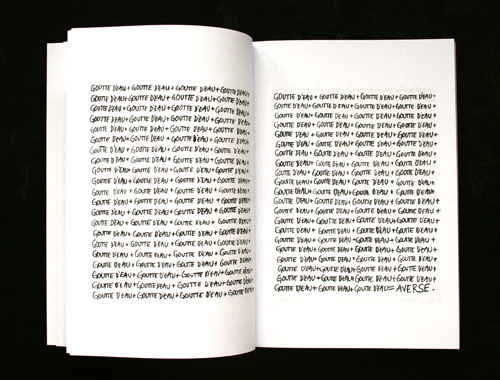 GOUTTE D'EAU+ GOUTTE D'EAU+ GOUTTE D'EAU+ GOUTTE D'EAU+
GOUTTE D'EAU+ GOUTTE D'EAU+ GOUTTE D'EAU+ GOUTTE D'EAU+
GOUTTE D'EAU+ GOUTTE D'EAU+ GOUTTE D'EAU+ GOUTTE D'EAU+
GOUTTE D'EAU+ GOUTTE D'EAU+ GOUTTE D'EAU+ GOUTTE D'EAU+
GOUTTE D'EAU+ GOUTTE D'EAU+ GOUTTE D'EAU+ GOUTTE D'EAU+
GOUTTE D'EAU+ GOUTTE D'EAU+ GOUTTE D'EAU+ GOUTTE D'EAU+
GOUTTE D'EAU+ GOUTTE D'EAU+ GOUTTE D'EAU+ GOUTTE D'EAU+
GOUTTE D'EAU+ GOUTTE D'EAU+ GOUTTE D'EAU+ GOUTTE D'EAU+
GOUTTE D'EAU+ GOUTTE D'EAU+ GOUTTE D'EAU+ GOUTTE D'EAU+
GOUTTE D'EAU+ GOUTTE D'EAU+ GOUTTE D'EAU+ GOUTTE D'EAU+
GOUTTE D'EAU+ GOUTTE D'EAU+ GOUTTE D'EAU+ GOUTTE D'EAU+
GOUTTE D'EAU+ GOUTTE D'EAU+ GOUTTE D'EAU+ GOUTTE D'EAU+
GOUTTE D'EAU+ GOUTTE D'EAU+ GOUTTE D'EAU+ GOUTTE D'EAU+
GOUTTE D'EAU+ GOUTTE D'EAU+ GOUTTE D'EAU+ GOUTTE D'EAU+
GOUTTE D'EAU+ GOUTTE D'EAU+ GOUTTE D'EAU+ GOUTTE D'EAU+
GOUTTE D'EAU+ GOUTTE D'EAU+ GOUTTE D'EAU+ GOUTTE D'EAU+
GOUTTE D'EAU+ GOUTTE D'EAU+ GOUTTE D'EAU+ GOUTTE D'EAU+
GOUTTE D'EAU+ GOUTTE D'EAU+ GOUTTE D'EAU+ GOUTTE D'EAU+
GOUTTE D'EAU+ GOUTTE D'EAU+ GOUTTE D'EAU+ GOUTTE D'EAU+
GOUTTE D'EAU+ GOUTTE D'EAU+ GOUTTE D'EAU+ GOUTTE D'EAU+
GOUTTE D'EAU+ GOUTTE D'EAU+ GOUTTE D'EAU+ GOUTTE D'EAU+
GOUTTE D'EAU+ GOUTTE D'EAU+ GOUTTE D'EAU+ GOUTTE D'EAU+
GOUTTE D'EAU+ GOUTTE D'EAU+ GOUTTE D'EAU+ GOUTTE D'EAU+
GOUTTE D'EAU+ GOUTTE D'EAU+ GOUTTE D'EAU+ GOUTTE D'EAU+
GOUTTE D'EAU+ GOUTTE D'EAU+ GOUTTE D'EAU+ GOUTTE D'EAU+
GOUTTE D'EAU+ GOUTTE D'EAU+ GOUTTE D'EAU+ GOUTTE D'EAU+
GOUTTE D'EAU+ GOUTTE D'EAU+ GOUTTE D'EAU+ GOUTTE D'EAU+
GOUTTE D'EAU+ GOUTTE D'EAU+ GOUTTE D'EAU+ GOUTTE D'EAU+
GOUTTE D'EAU+ GOUTTE D'EAU+ GOUTTE D'EAU+ GOUTTE D'EAU+
GOUTTE D'EAU+ GOUTTE D'EAU+ GOUTTE D'EAU+ GOUTTE D'EAU+
GOUTTE D'EAU+ GOUTTE D'EAU+ GOUTTE D'EAU+ GOUTTE D'EAU+
GOUTTE D'EAU+ GOUTTE D'EAU+ GOUTTE D'EAU+ GOUTTE D'EAU+
GOUTTE D'EAU+ GOUTTE D'EAU+ GOUTTE D'EAU+ GOUTTE D'EAU+
GOUTTE D'EAU+ GOUTTE D'EAU+ GOUTTE D'EAU+ GOUTTE D'EAU+
GOUTTE D'EAU+ GOUTTE D'EAU+ GOUTTE D'EAU+ GOUTTE D'EAU+
GOUTTE D'EAU+ GOUTTE D'EAU+ GOUTTE D'EAU+ GOUTTE D'EAU+
GOUTTE D'EAU+ GOUTTE D'EAU+ GOUTTE D'EAU+ GOUTTE D'EAU+
GOUTTE D'EAU+ GOUTTE D'EAU+ GOUTTE D'EAU+ GOUTTE D'EAU+
GOUTTE D'EAU+ GOUTTE D'EAU+ GOUTTE D'EAU+ GOUTTE D'EAU+
GOUTTE D'EAU+ GOUTTE D'EAU+ GOUTTE D'EAU+ GOUTTE D'EAU+
GOUTTE D'EAU+ GOUTTE D'EAU+ GOUTTE D'EAU+ GOUTTE D'EAU+
GOUTTE D'EAU+ GOUTTE D'EAU+ GOUTTE D'EAU= AVERSE.